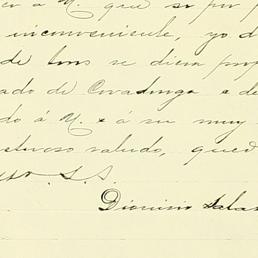 á U. que si por p
inconveniente, yo d
de los se diera prop
ado de Covadonga a de
do á U. á su muy
stuoso saludo, qued
S. S.
Dionisio Salas